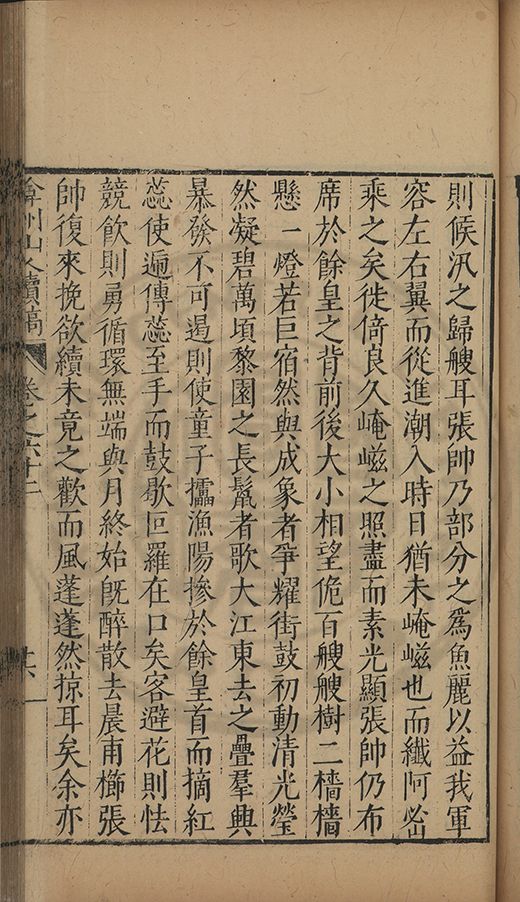 則候汛之歸艘耳張帥乃部分之爲魚麗以益我軍
容左右翼而從進潮入時日猶未崦嵫也而纖阿密
乘之矣徙倚良久崦嵫之照盡而素光顯張帥仍布
席於餘皇之背前後大小相望佹百艘艘樹二檣檣
懸一燈若巨宿然與成象者爭耀街鼓初動清光瑩
然凝碧萬頃黎園之長鬣者歌大江東去之疊羣興
暴發不可遏則使童子擂漁陽摻於餘皇首而摘紅
蕊使遍傳蕊至手而鼓歇叵羅在口矣客避花則怯
競飲則勇循環無端與月終始旣醉散去晨甫櫛張
帥復來挽欲續未竟之歡而風蓬蓬然掠耳矣余亦
弇州山人續稿 卷之六十二